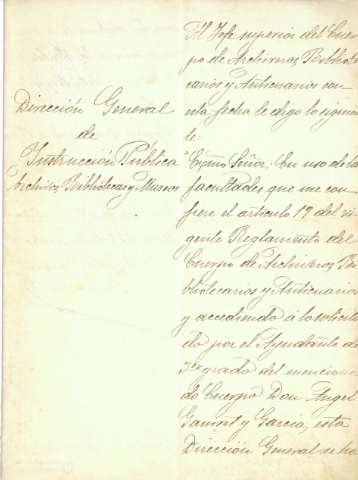 Dirección General
de
Instrucción Publica
Archivos, Bibliotecas y Museos
Al Jefe superior del Cuer
po de Archiveros Bibliote
carios y Anticuarios con
esta fecha le digo lo siguien
te:
"Excmo Señor: En uso de las
facultades que me con
fiere el articulo 19 del vi
gente Reglamento del
Cuerpo de Archiveros Bi
bliotecarios y Anticuarios
y accediendo á lo solicita
do por el Ayudante de
3er grado del menciona
do Cuerpo Don Ángel
Ganivet y Garcia, esta
Dirección General se ha